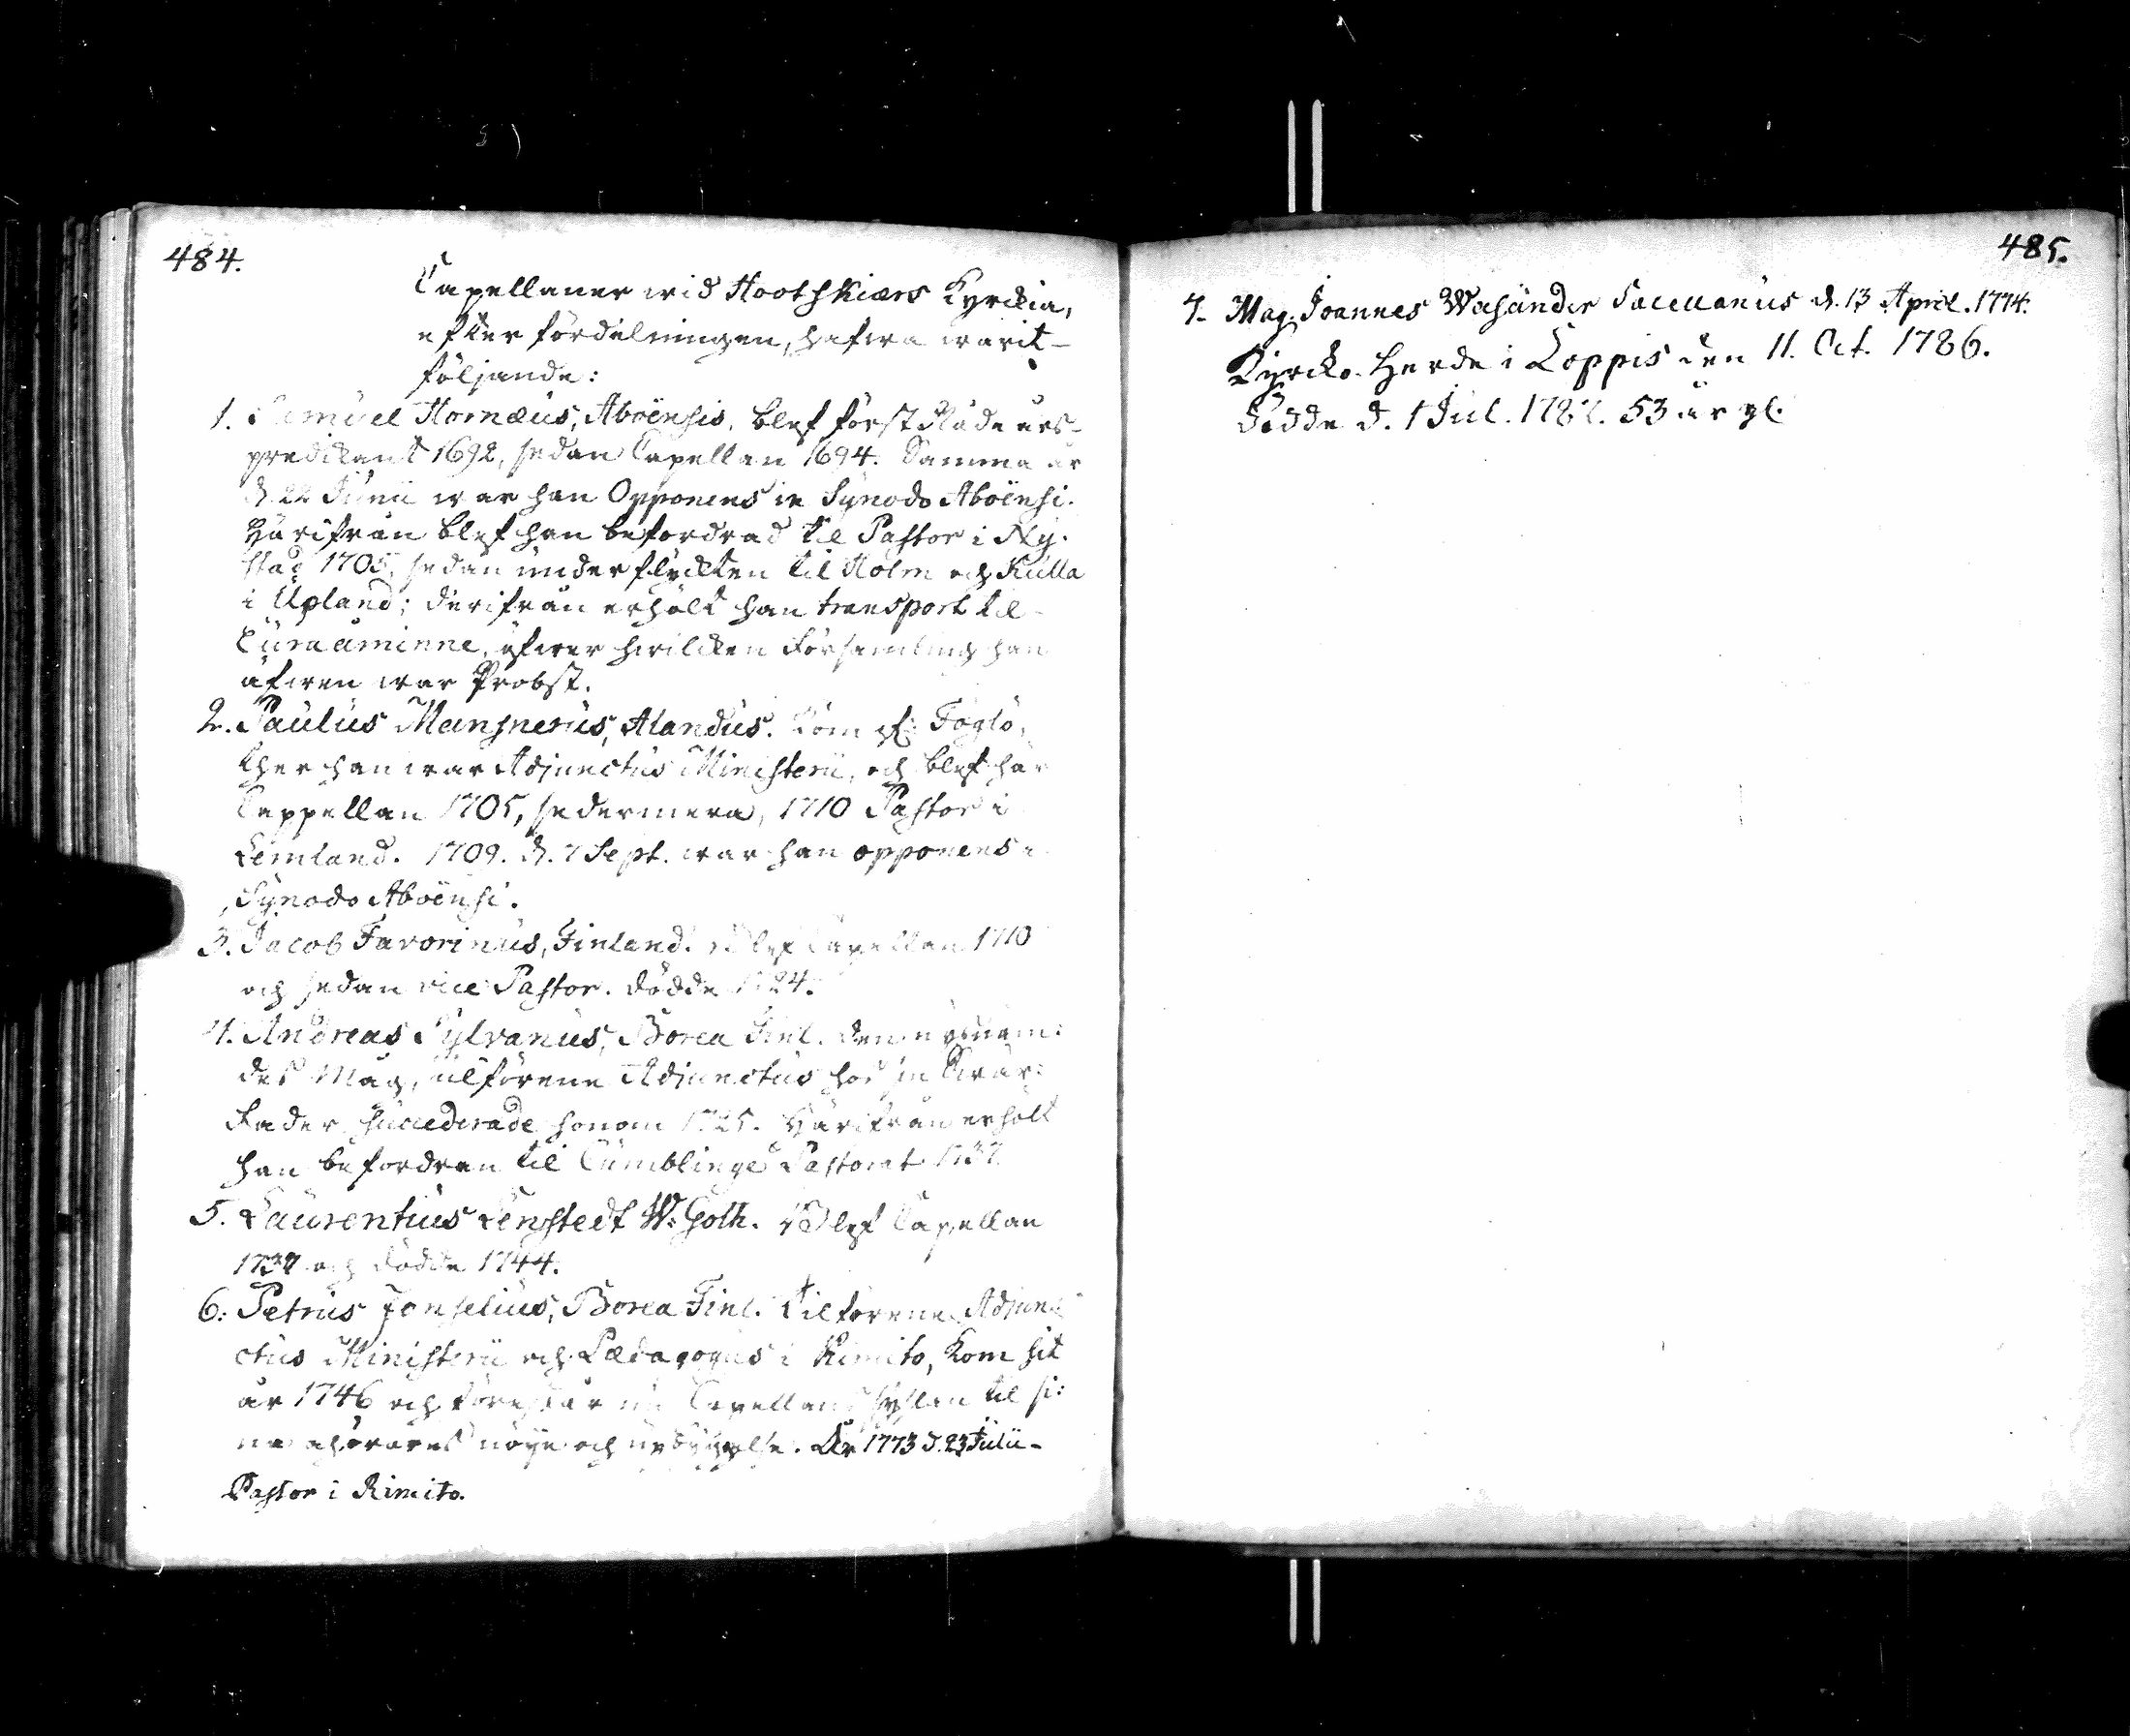 484.
Capellaner wid Hootskiærs Kyrckia,
efter fördelningen, hafwa warit
följande:
1. Samuel Hornæus, Aboënsis, blef först
predikant 1692, sedan Capellan 1694. Samma år
d. 22 Junii war han Opponens in Synodo Aboënsi.
Härifrån blef han befordrad til Pastor i Ny-
stad 1705, sedan under flyckten til Holm och Kulla
i Upland; derifrån erhölt han transport til
Euraåminne, öfwer hwilcken Församling han
äfwen war Probst.
2. Paulus Mansnerus, Alandus. Kom ifr. Föglö,
ther han war Adjunctus Ministerii, och blef här
Cappellan 1705, sedermera, 1710 Pastor i
Lemland. 1709. d. 7 Sept. war han opponens i
Synodo Aboënsi.
3. Jacob Favorinus, Finland. Blef Capellan 1710
och sedan vice Pastor. Dödde 1724.
4. Andreas Sylvanus, Borea Finl. Den
des Måg, tilförene Adjunctus hos sin Swär-
Fader, succederade honom 1725. Härifrån erhölt
han befordran til Cumblinge Pastorat 1737.
5. Laurentius Lenstedt W: Goth. Blef Capellan
1737 och dödde 1744.
6: Petrus Jonselius, Borea Finl. Tilförene Adjun-
ctus Ministerii och Pædagogus i Rimito, kom hit
år 1746 och förestår nu Capellans syslan til si-
na åhörares nöye och upbyggelse. År 1773 d. 23 Julii
Pastor i Rimito.
485.
7. Mag. Joannes Wasander Sacellanus d. 13 April. 1774.
Kyrcko-Herde i Loppis den 11. Oct. 1786.
Dödde d. 1 Jul. 1787. 53 år gl.